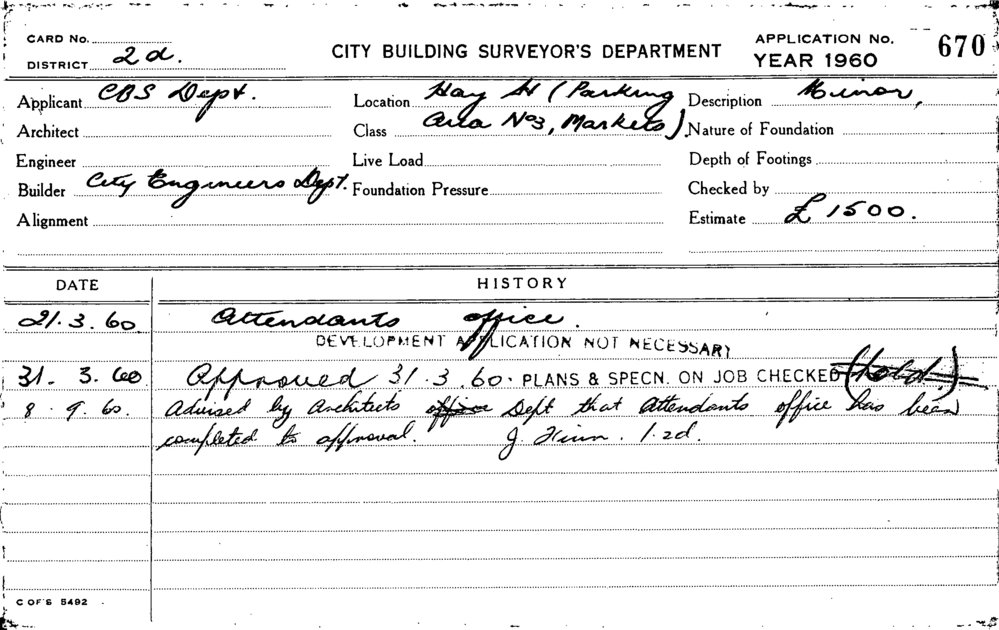 CARD No.
DISTRICT 2d.
CITY BUILDING SURVEYOR'S DEPARTMENT
APPLICATION No. 670
YEAR 1960
Applicant CBS Dept. Location Hay St (Parking Description Minor,
Architect Class Area No3, Markets). Nature of Foundation
Engineer Live Load Depth of Footings
Builder City Engineers Dept. Foundation Pressure Checked by
Alignment Estimate £ 1500.
DATE HISTORY
21. 3. 60 Attendants office.
DEVELOPMENT APPLICATION NOT NECESSARY
31. 3. 60 Approved 31. 3. 60. PLANS & SPECN. ON JOB CHECKED
8. 9. 60. Advised by Architects office Dept that Attendants office has been
completed to approval. J. 2d.
C OF S 5492